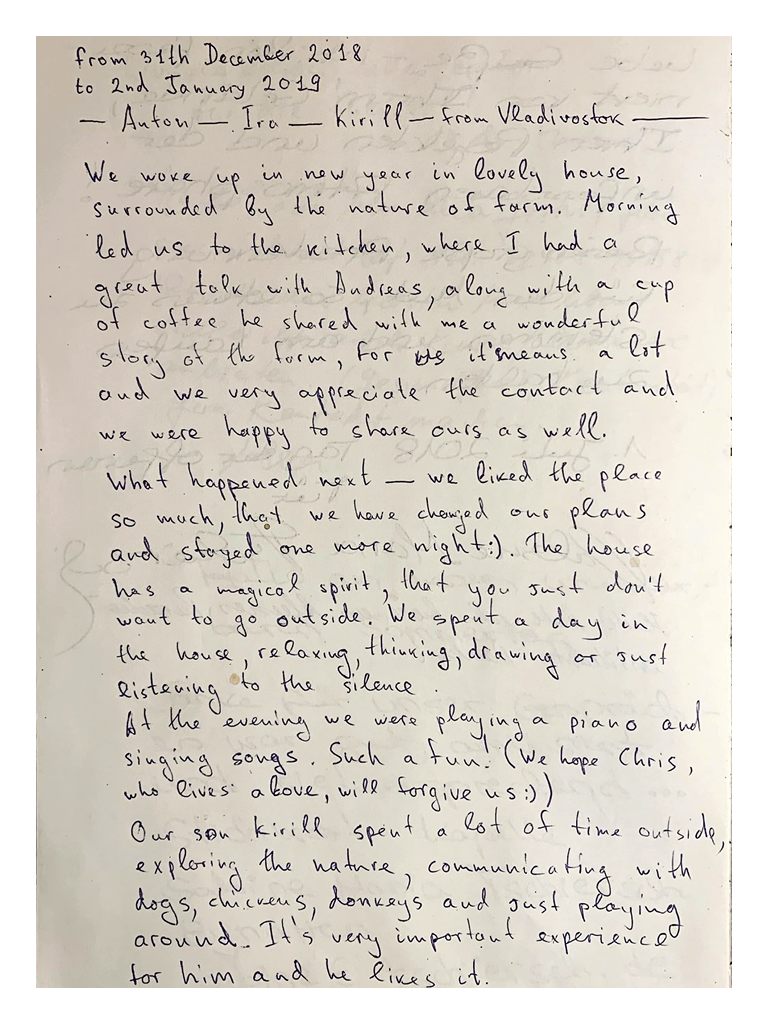 from 31th December 2018
to 2nd January 2019
— Anton — Ira — Kirill — from Vladivostok —
We woke up in new year in lovely house,
surrounded by the nature of farm. Morning
led us to the kitchen, where I had a
great talk with Andreas, along with a cup
of coffee he shared with me a wonderful
story of the farm, for us it'means a lot
and we very appreciate the contact and
we were happy to share ours as well.
What happened next — we liked the place
so much, that we have changed our plans
and stayed one more night:). The house
has a magical spirit, that you just don't
want to go outside. We spent a day in
the house, relaxing, thinking, drawing or just
listening to the silence.
At the evening we were playing a piano and
singing songs. Such a fun! (We hope Chris,
who lives above, will forgive us:))
Our son Kirill spent a lot of time outside,
exploring the nature, communicating with
dogs, chickens, donkeys and just playing
around. It's very important experience
for him and he likes it.